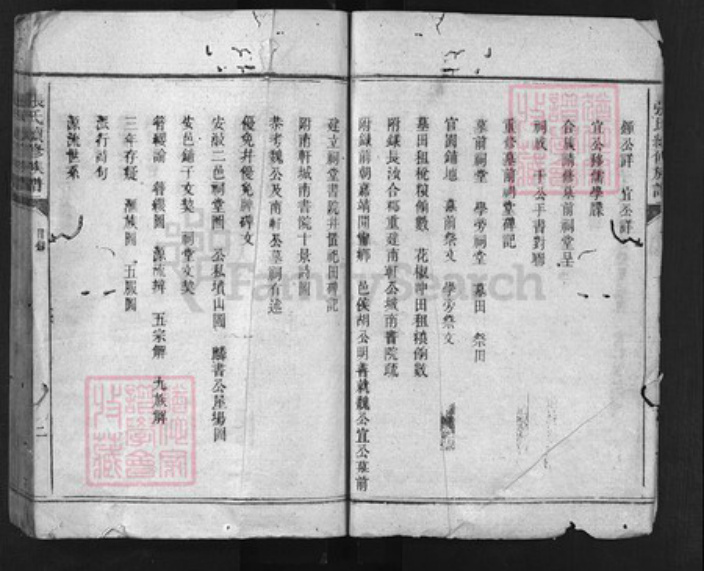 鍾公詳　宜公詳
宜公移儒學牒
合族請修墓前祠堂呈
祠成　于公手書對聯
重修墓前祠堂碑記
墓前祠堂　學旁祠堂　墓田　祭田
官園鋪地　墓前祭文　學旁祭文
墓田租稅糧餉數　花椒冲田租糧餉數
附錄長沙合鄉重建南軒公城南書院疏
附錄前朝嘉靖間寧鄉　邑侯胡公明善就魏公宜公墓前
建立祠堂書院幷置祀田碑記
附南軒城南書院十景詩圖
恭考魏公及南軒公墓祠有述
優免幷優免牌碑文
安鄉二邑祠堂圖　公私墳山圖　麟書公屋場圖
安邑鋪子文契　祠堂文契
脊㘿論　脊㘿圖　源流辨　五宗解　九族解
三年存疑　源族圖　五服圖
派行詩句
源流世系
張氏續修族譜
目錄
二
FamilySearch